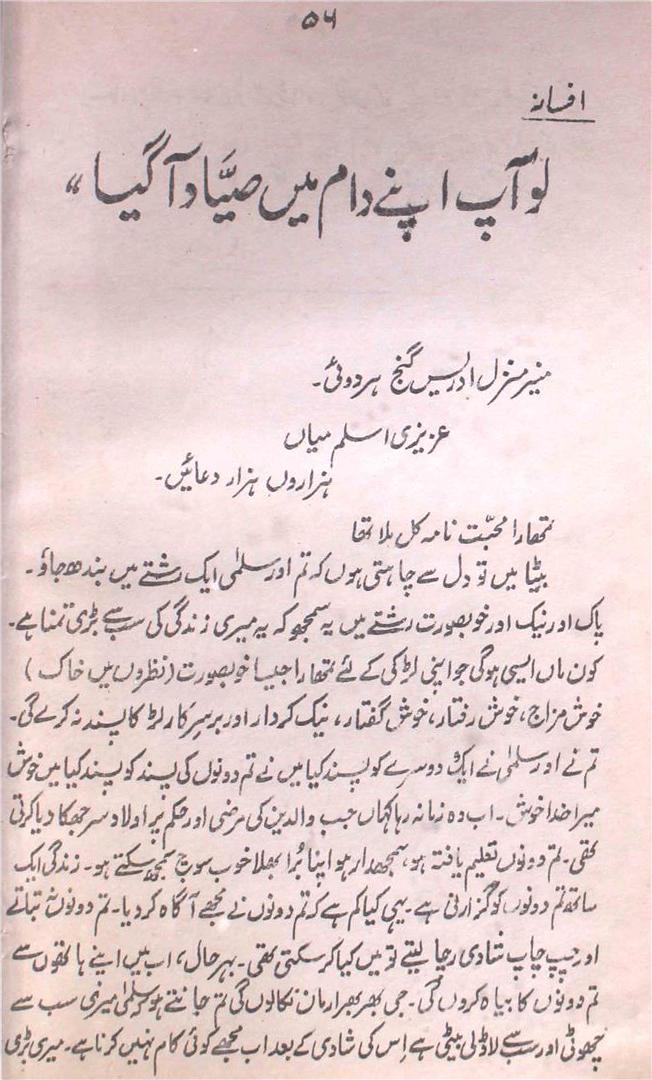 ۵۶
افسانہ
لو آپ اپنے دام میں صیّاد آگیا ،،
منیر منزل ادریس گنج ہردوئی۔
عزیزی اسلم میاں
ہزاروں ہزار دعائیں۔
تمھارا محبّت نامہ کل ملا تھا
بیٹا میں تو دل سے چاہتی ہوں کہ تم اور سلمٰی ایک رشتے میں بندھ جاؤ۔
پاک اور نیک اور خوبصورت رشتے میں یہ سمجھو کہ یہ میری زندگی کی سب سے بڑی تمنا ہے۔
کون ماں ایسی ہوگی جو اپنی لڑکی کے لئے تمھارا جیسا خوبصورت (نظروں میں خاک)
خوش مزاج، خوش رفتار، خوش گفتار، نیک کردار اور برسرِکار لڑکا پسند نہ کرے گی۔
تم نے اور سلمٰی نے ایک دوسرے کو پسند کیا میں نے تم دونوں کی پسند کو پسند کیا میں خوش
میرا خدا خوش۔ اب وہ زمانہ رہا کہاں جب والدین کی مرضی اور حکم پر اولاد سر جھکا دیا کرتی
تھی۔ تم دونوں تعلیم یافتہ ہو، سمجھدار ہو اپنا بُرا بھلا خوب سوچ سمجھ سکتے ہو۔ زندگی ایک
ساتھ تم دونوں کو گزارنی ہے۔ یہی کیا کم ہے کہ تم دونوں نے مجھے آگاہ کر دیا۔ تم دونوں نہ بتاتے
اور چپ چاپ شادی رچا لیتے تو میں کیا کر سکتی تھی۔ بہر حال، اب میں اپنے ہاتھوں سے
تم دونوں کا بیاہ کروں گی۔ جی بھر بھر ارمان نکالوں گی تم جانتے ہو کہ سلمٰی میری سب سے
چھوٹی اور سب سے لاڈلی بیٹی ہے اِس کی شادی کے بعد اب مجھے کوئی کام نہیں کرنا ہے۔ میری بڑی